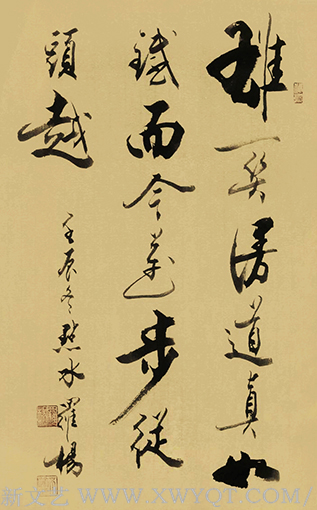 雄关漫道真如
鐵而今邁步從
頭越
壬辰冬點水羅楊
新文艺 WWW.XWYQT.COM/